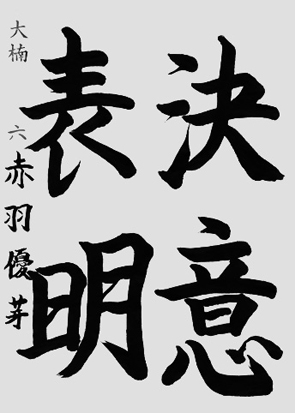 決意
表明
大楠 六 赤羽優芽